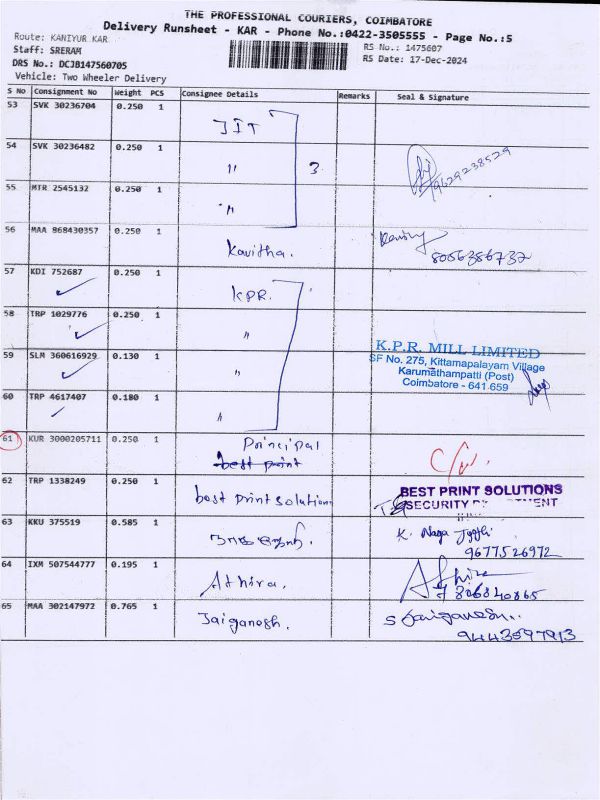 THE PROFESSIONAL COURIERS, COIMBATORE
Delivery Runsheet - KAR - Phone No.:0422-3505555 - Page No.:5
Route: KANIYUR KAR
Staff: SRERAM
RS No.: 1475607
DRS No.: DCJB147560705
RS Date: 17-Dec-2024
Vehicle: Two Wheeler Delivery
S No Consignment No Weight PCS Consignee Details Remarks Seal & Signature
53 SVK 30236704 0.250 1 JIT
54 SVK 30236482 0.250 1 " 3 9629238529
55 MTR 2545132 0.250 1 "
56 MAA 868430357 0.250 1 Kavitha. 8056386732
57 KDI 752687 0.250 1 KPR.
58 TRP 1029776 0.250 1 "
59 SLM 360616929 0.130 1 "
K.P.R. MILL LIMITED
SF No. 275, Kittamapalayam Village
Karumathampatti (Post)
Coimbatore - 641 659
60 TRP 4617407 0.180 1 "
61 KUR 3000205711 0.250 1 Principal
best print
62 TRP 1338249 0.250 1 best print solution
BEST PRINT SOLUTIONS
SECURITY
63 KKU 375519 0.585 1 K. Naga Jyothi
9677526972
64 IXM 507544777 0.195 1 Athira. Athira
65 MAA 302147972 0.765 1 Jaiganesh. S Jaiganesh..
9443597913